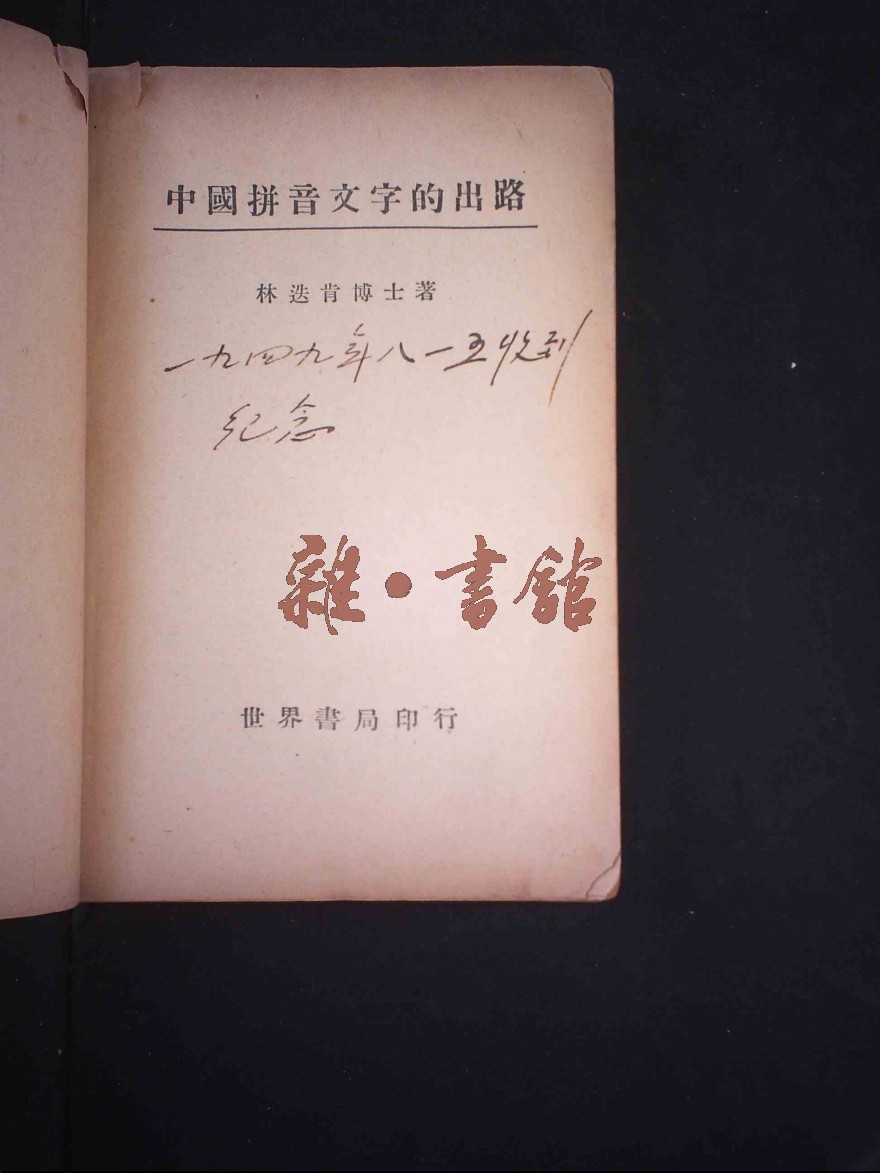 中國拼音文字的出路
林迭肯博士著
一九四九年八一五收到
紀念
雜·書館
世界書局印行